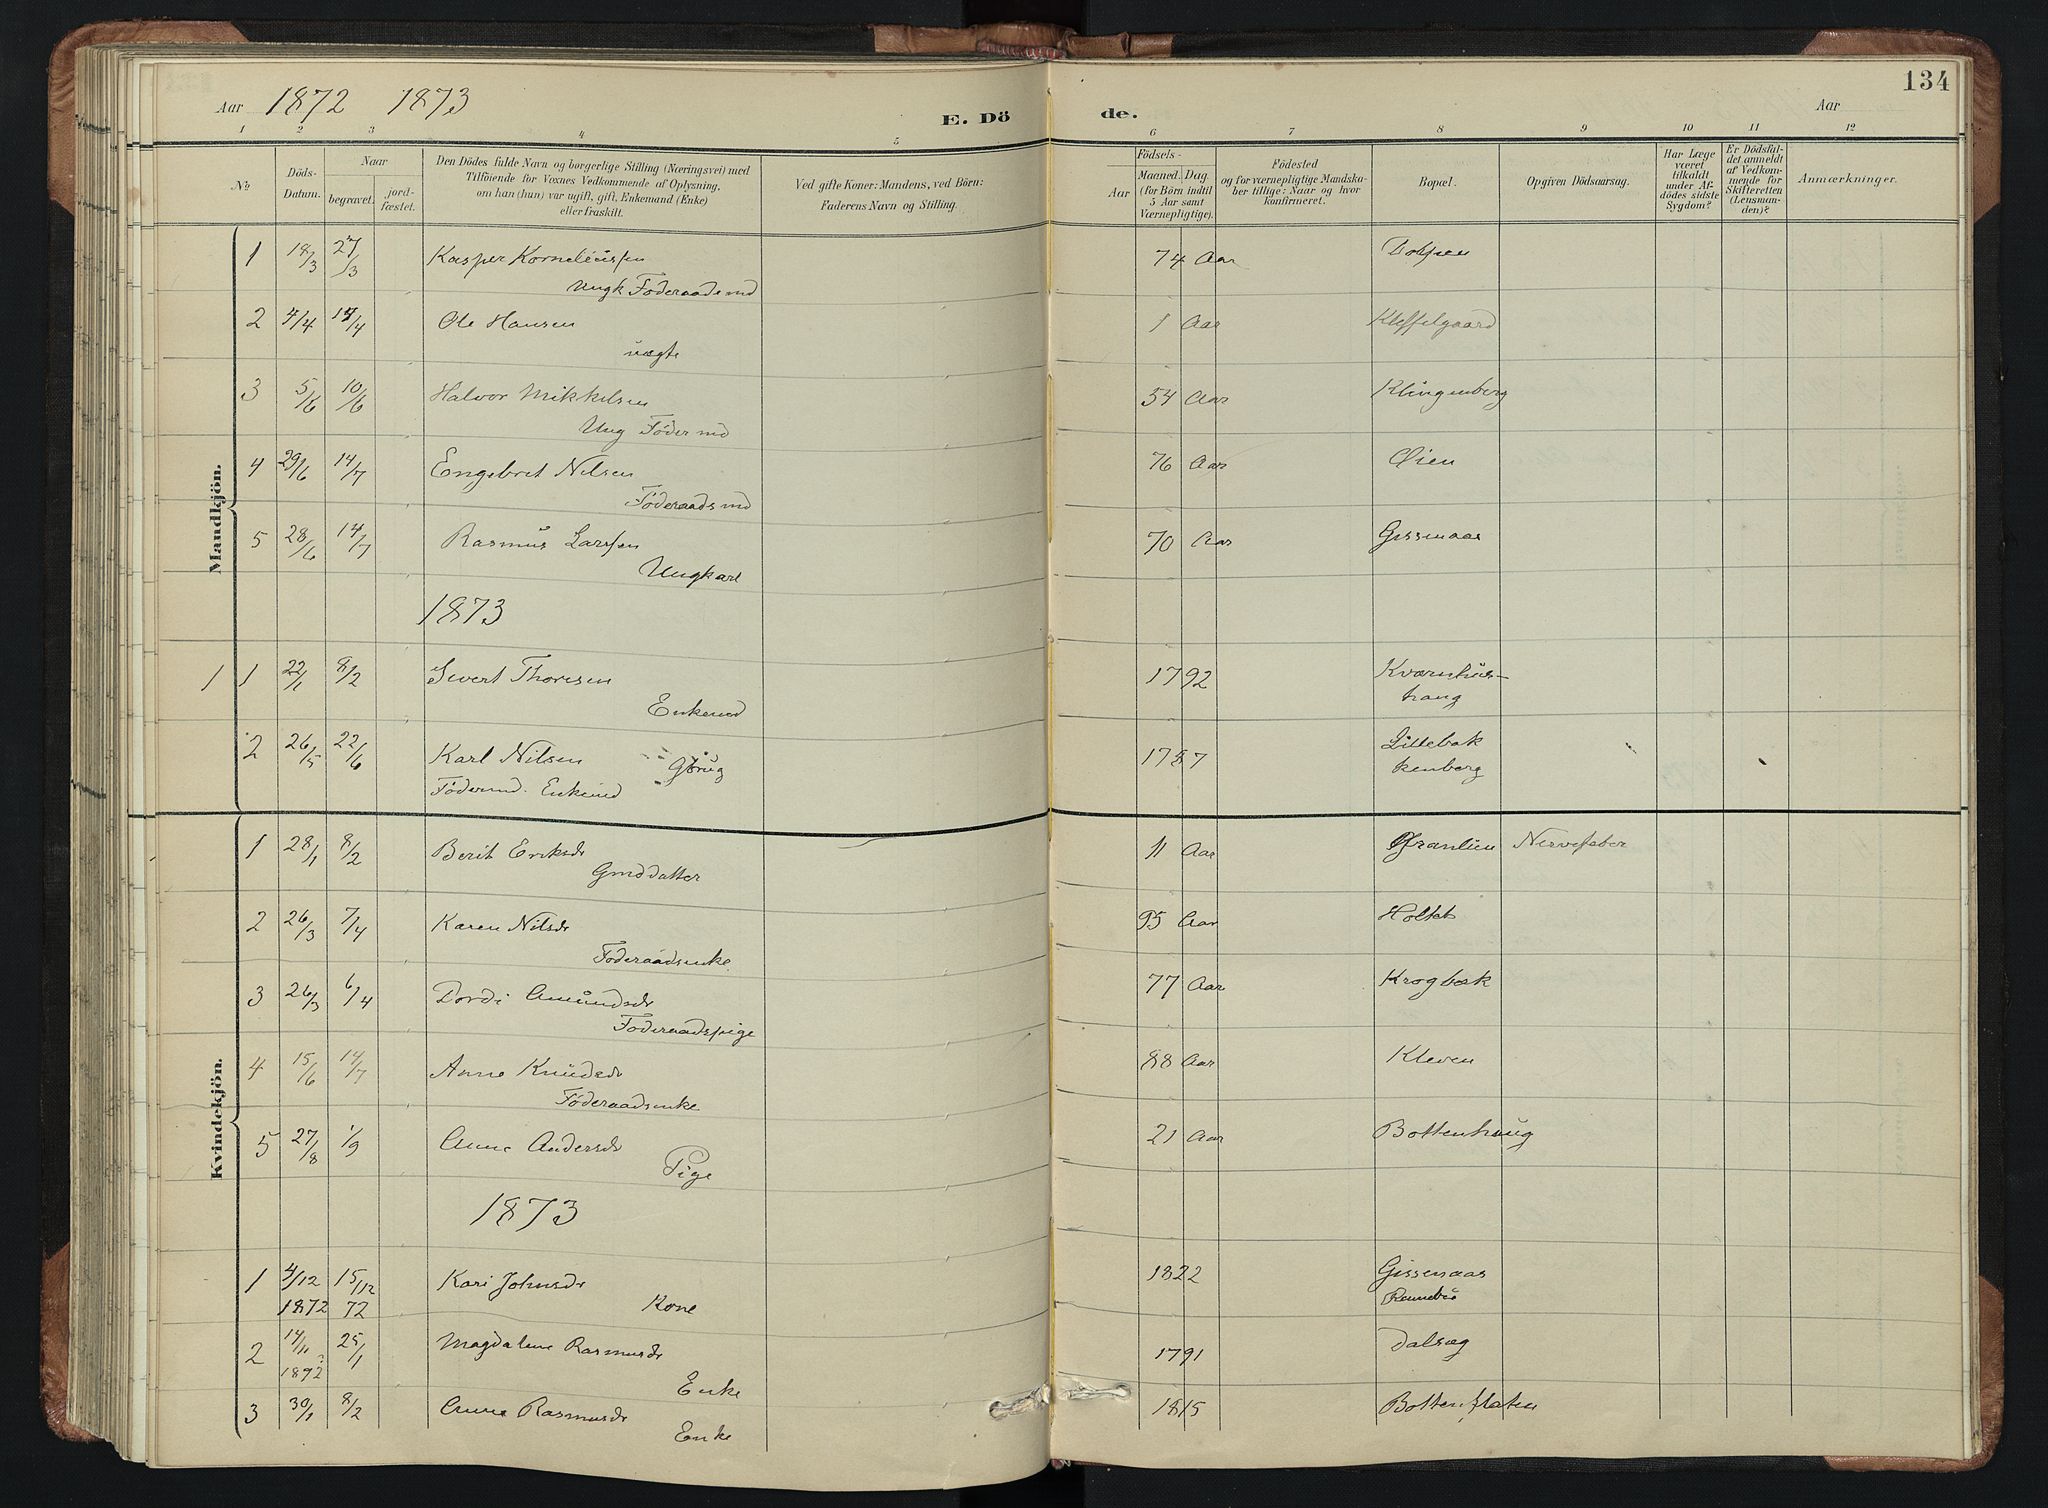 134
Aar 1872 1873 E. Dö de. Aar
1 2 3 4 5 6 7 8 9 10 11 12
№
Döds-
Datum.
Naar
begravet.
jord-
fæstet.
Den Dödes fulde Navn og borgerlige Stilling (Næringsvei) med
Tilföiende for Voxnes Vedkommende af Oplysning,
om han (hun) var ugift, gift, Enkemand (Enke)
eller fraskilt.
Ved gifte Koner: Mandens, ved Börn:
Faderens Navn og Stilling.
Födsels-
Aar
Maaned. Dag
(for Börn indtil
5 Aar samt
Værnepligtige).
Födested
og for værnepligtige Mandska-
ber tillige: Naar og hvor
konfirmeret.
Bopæl.
Opgiven Dödsaarsag.
Har Læge
været
tilkaldt
under Af-
dödes sidste
Sygdom?
Er Dödsfal-
det anmeldt
af Vedkom-
mende for
Skifteretten
(Lensman-
den)?
Anmærkninger.
Mandkjön.
1 18/3 27/3 Kasper Korneliussen 74 Aar
Ungk Föderaadsmd
2 4/4 14/4 Ole Hansen 1 Aar Kleffelgaard
uægte
3 5/6 10/6 Halvor Mikkelsen 54 Aar Klingenberg
Ung Föder md
4 29/6 14/7 Engebret Nilsen 76 Aar Øien
Föderaadsmd
5 28/6 14/7 Rasmus Larssen 70 Aar Gissenaas
Ungkarl
1873
1 1 22/1 8/2 Sivert Thoresen 1792 Kværnhus-
Enkemd trang
2 26/5 22/6 Karl Nilsen Gbrug Littebak
Födermd. Enkemd kenberg
Kvindekjön.
1 28/1 8/2 Berit Eriksdr 11 Aar Granlien Nervefeber
Gmddatter
2 26/3 7/4 Karen Nilsdr 95 Aar Holtet
Föderaadsenke
3 26/3 6/4 Dordi Amundsdr 77 Aar Krogbæk
Föderaadspige
4 15/6 14/7 Anne Knudsdr 88 Aar Kleven
Föderaadsenke
5 27/8 1/9 Anne Andersdr 21 Aar Bottenhaug
Pige
1873
1 4/12 15/12 Kari Johnsdr 1822 Gissenaas
1872 72 Kone
2 14/11 25/1 Magdalene Rasmusdr 1791 Dalsæg
1872 ? Enke
3 30/1 8/2 Anne Rasmusdr 1815 Botten
Enke